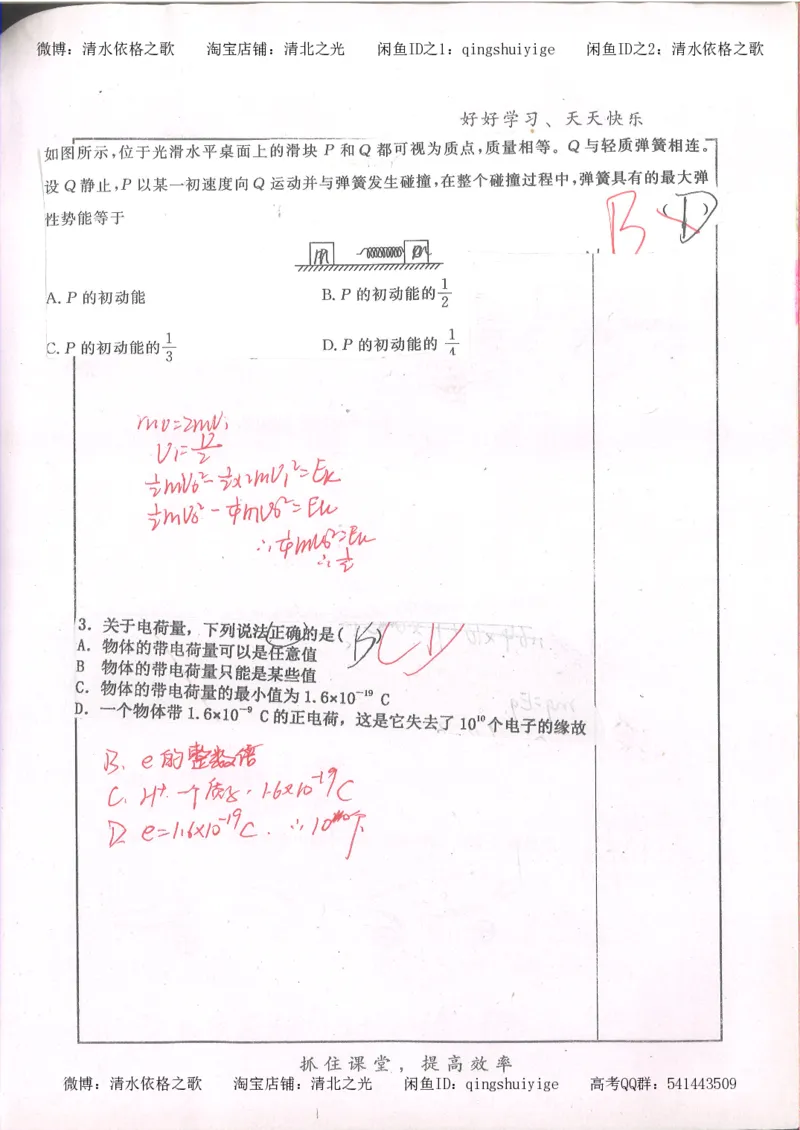 微博：清水依格之歌 淘宝店铺：清北之光 闲鱼ID之1：qingshuiyige 闲鱼ID之2：清水依格之歌
好好学习、天天快乐
如图所示，位于光滑水平桌面上的滑块 P 和 Q 都可视为质点，质量相等。Q 与轻质弹簧相连。
设 Q 静止，P 以某一初速度向 Q 运动并与弹簧发生碰撞，在整个碰撞过程中，弹簧具有的最大弹
性势能等于 (D) B
m m
A. P 的初动能 B. P 的初动能的 1/2
C. P 的初动能的 1/3 D. P 的初动能的 1/4
mv=2mv₁
v₁=v/2
½mv₀²-½×2mv₁²=Ek
½mv₀²-¼mv₀²=Ek
∴¼mv₀²=Ek
∴½
3．关于电荷量，下列说法正确的是(B) CD
A．物体的带电荷量可以是任意值
B 物体的带电荷量只能是某些值
C．物体的带电荷量的最小值为 1.6×10⁻¹⁹ C
D．一个物体带 1.6×10⁻⁹ C 的正电荷，这是它失去了 10¹⁰ 个电子的缘故
B、e的整数倍
C. H⁺ 一个质子. 1.6×10⁻¹⁹C
D. e=1.6×10⁻¹⁹C. ∴10¹⁰个
抓住课堂，提高效率
微博：清水依格之歌 淘宝店铺：清北之光 闲鱼ID：qingshuiyige 高考QQ群：541443509